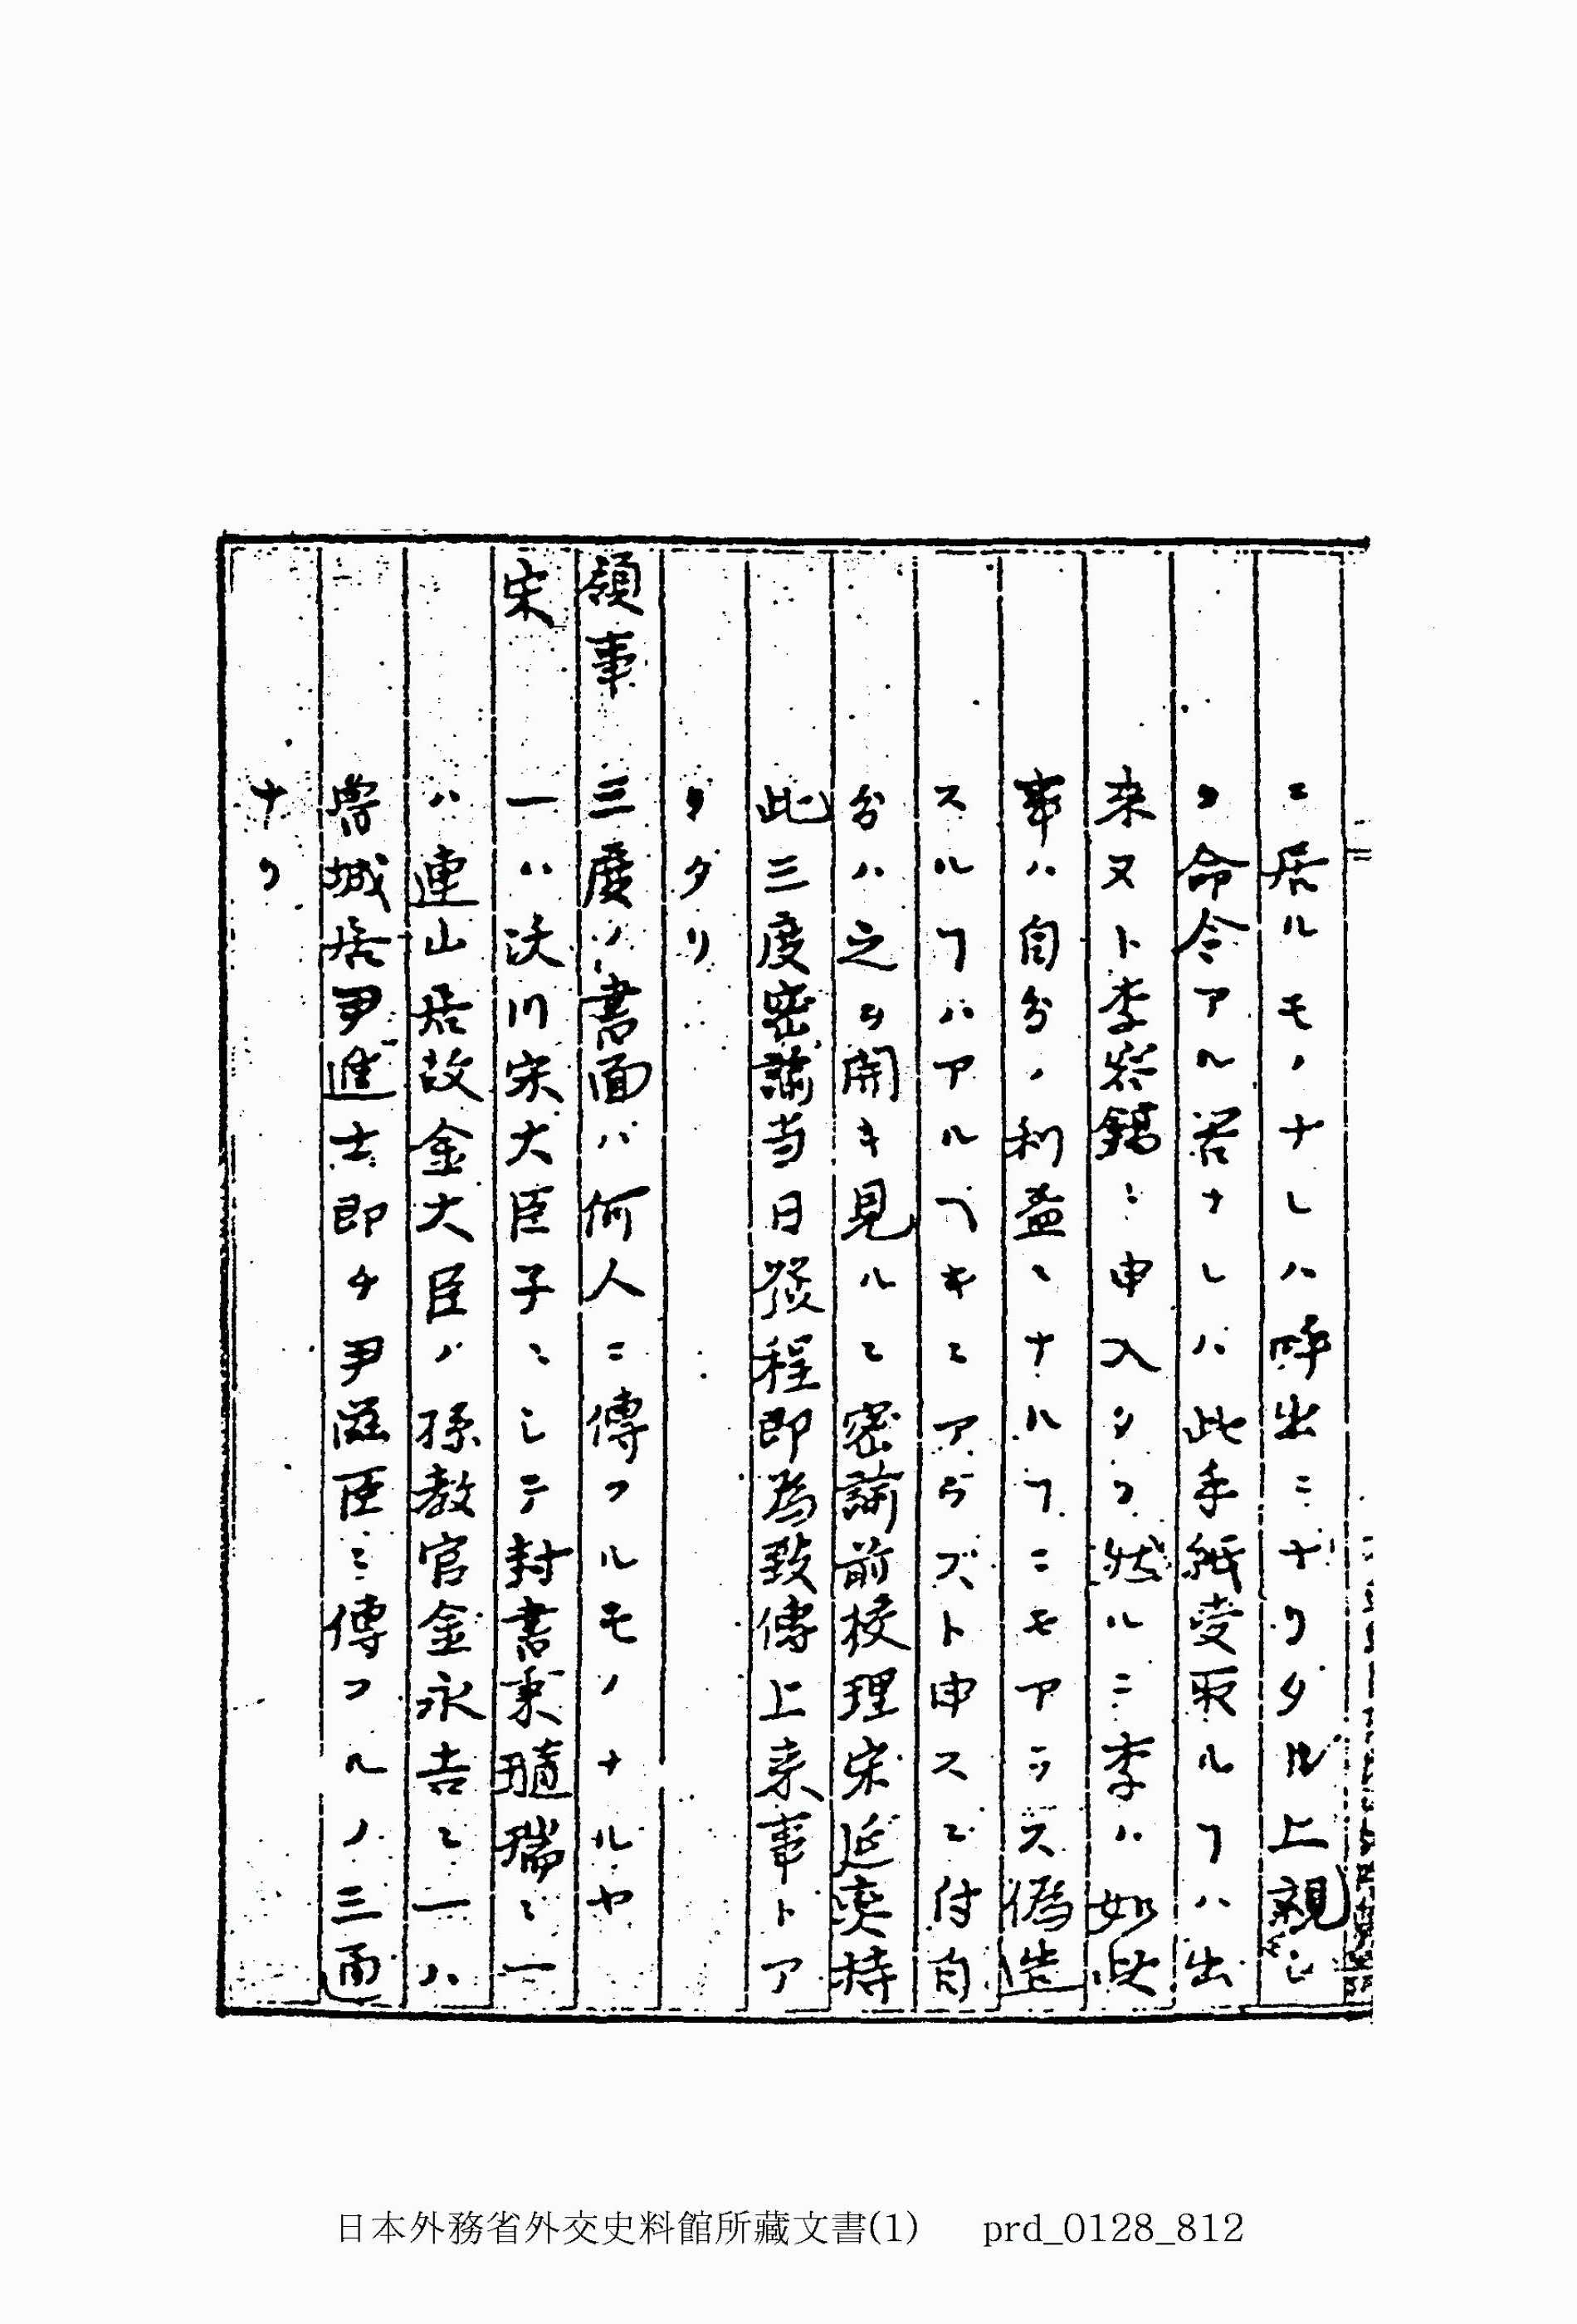 ニ居ルモノナレハ呼出ニナリタル上親シ
ク命令アル筈ナレハ此手紙受取ルヿハ出
来又ト李容鎬ニ申入タリ然ルニ李ハ如此
事ハ自分ノ利益ニナルヿニモアラス偽造
スルヿハアルヿキニアラズト申スニ付自
分ハ之ヲ開キ見ルニ密諭前校理宋廷奕持
此三度密諭当日發程即為致傳上来事トア
リタリ
領事 三度ノ書面ハ何人ニ傳フルモノナルヤ
宋 一ハ沃川宋大臣子ニシテ封書秉瑞ニ一
ハ連山居故金大臣ノ孫教官金永吉ニ一ハ
魯城居尹進士即チ尹滋臣ニ傳フルノ三通
ナリ
日本外務省外交史料館所藏文書(1) prd_0128_812